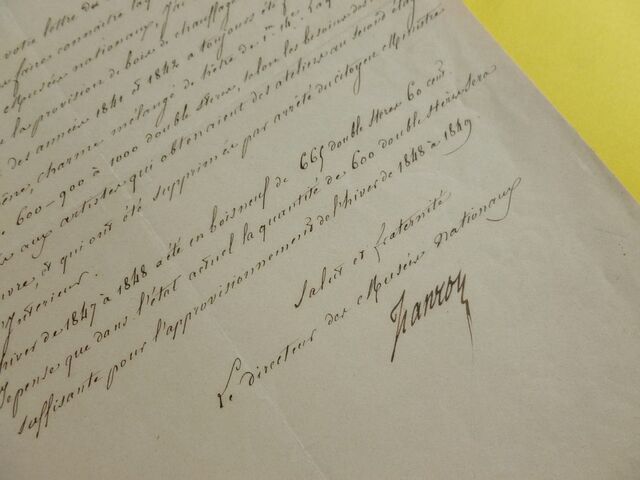 votre lettre du
faire connaître la
Musées nationaux, j'ai
la provision de bois de chauffage
des années 1841 à 1842 a toujours été
charme mélangé de hêtre de
600-900 à 1000 double stères, selon les besoins des
aux artistes qui obtenaient des ateliers au second étage
et qui ont été supprimés par arrêté du citoyen Ministre
Intérieur.
hiver de 1847 à 1848 a été en bois neuf de 665 double stères 60 cent.
Je pense que dans l'état actuel la quantité des 600 double stères sera
suffisante pour l'approvisionnement de l'hiver de 1848 à 1849.
Salut et fraternité
Le directeur des Musées Nationaux
Jeanron